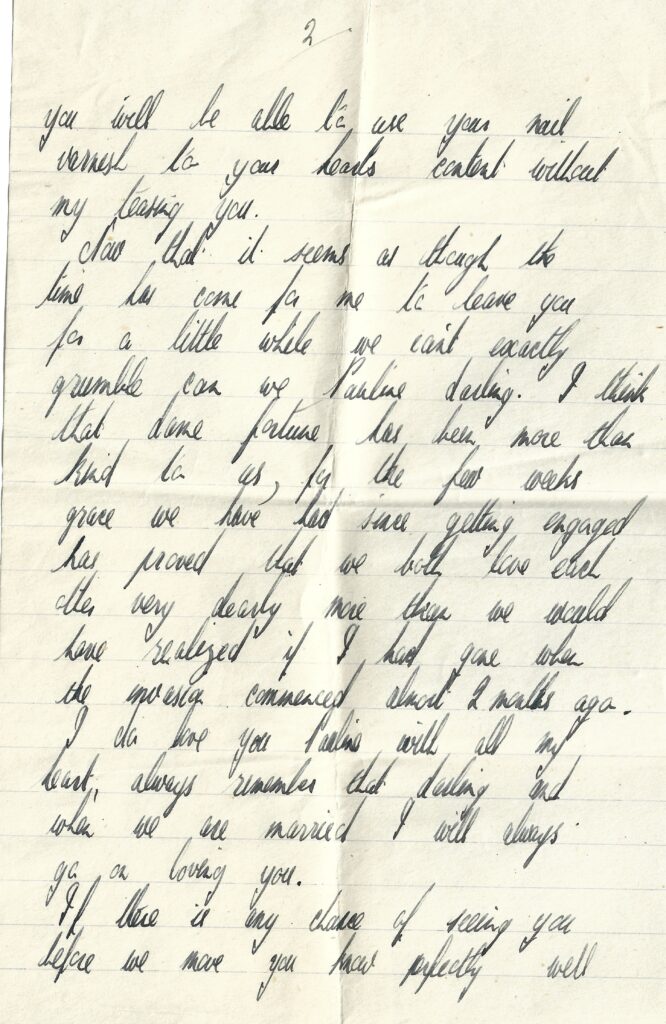 2
you will be able to use your nail
varnish to your hearts content without
my teasing you.
Now that it seems as though the
time has come for me to leave you
for a little while we can't exactly
grumble can we Pauline darling. I think
that dame fortune has been more than
kind to us, for the few weeks
grace we have had since getting engaged
has proved that we both love each
other very dearly more than we would
have realized if I had gone when
the invasion commenced almost 2 months ago.
I do love you Pauline with all my
heart, always remember that darling and
when we are married I will always
go on loving you.
If there is any chance of seeing you
before we move you know perfectly well